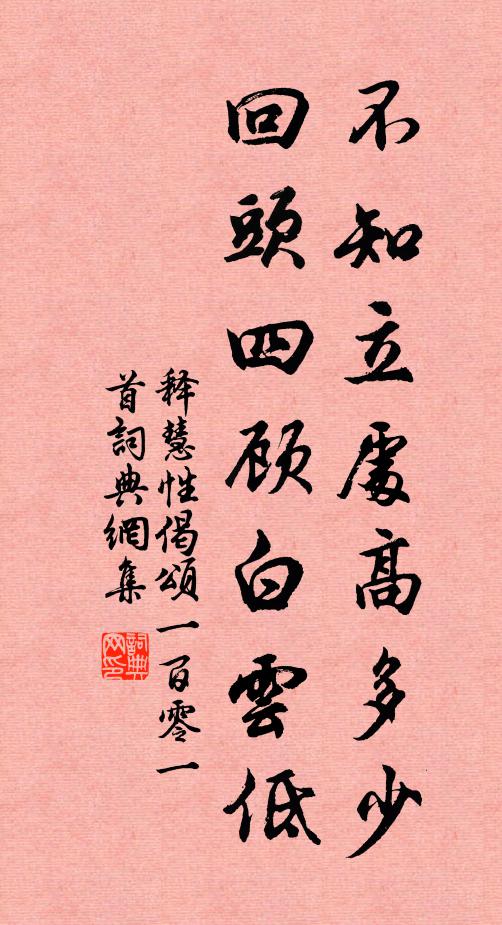 不知立處高多少
回頭四顧白雲低
释慧性偈頌一百零一
首詞典網集
詞典网印